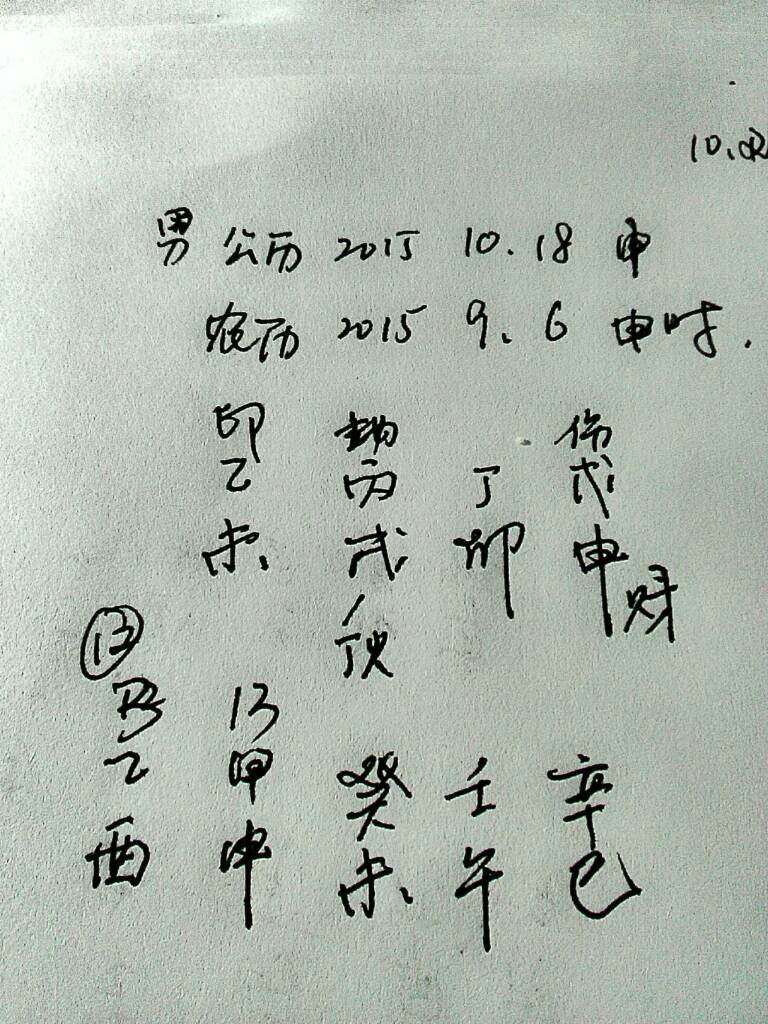 男 公历 2015 10.18 申
农历 2015 9.6 申时.
印 劫 伤
乙 丙 丁 戊
未 戌 卯 申
财
⑬
13
乙 甲 癸 壬 辛
酉 申 未 午 巳